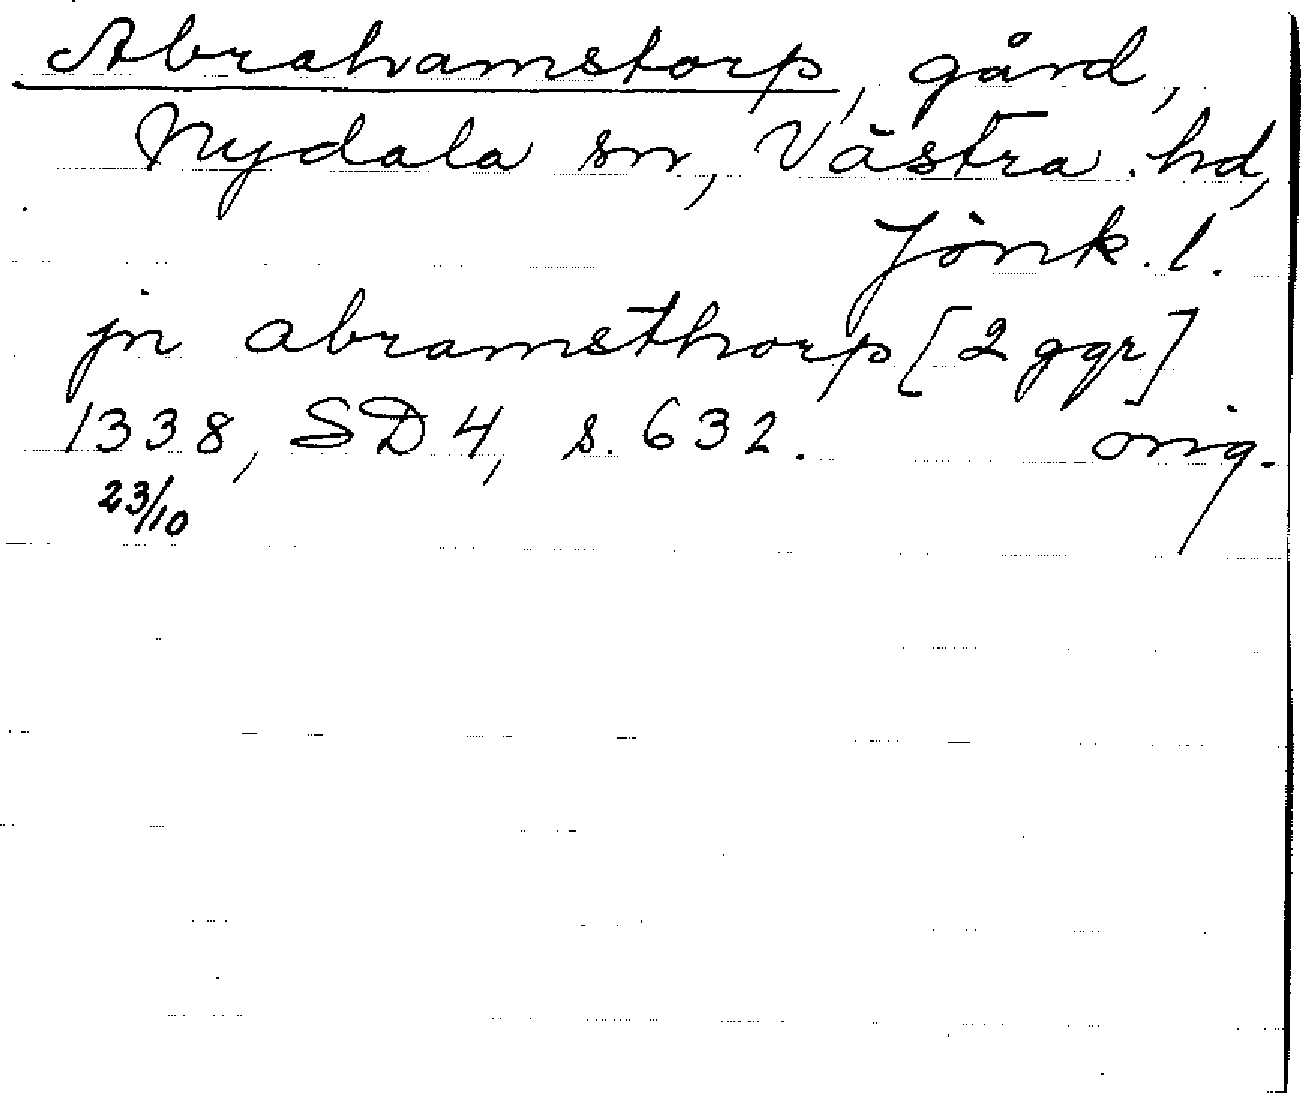 Abrahamstorp, gård,
Nydala sn, Västra hd,
Jönk. l.
jn abramsthorp [2 ggr]
1338, SD 4, s. 632. orig.
23/10